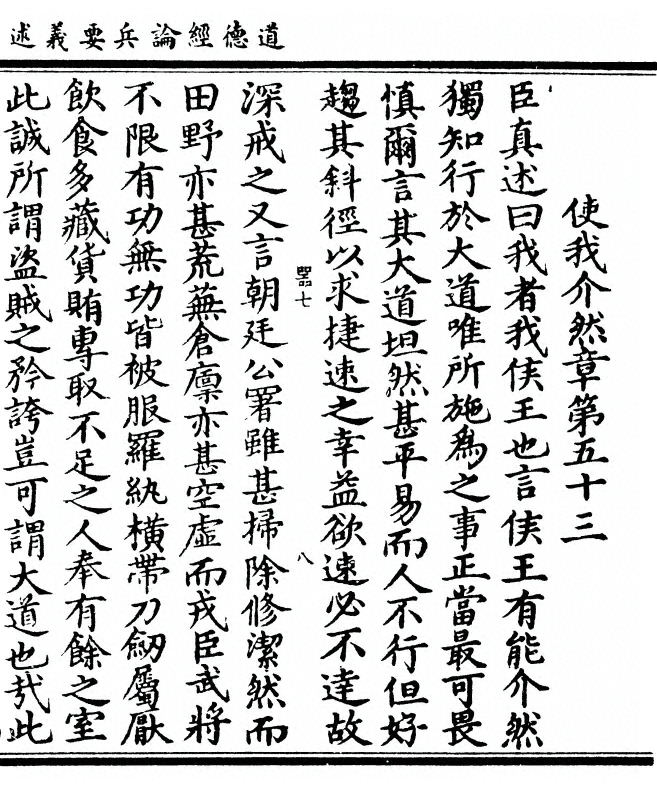 道德經論兵要義述
使我介然章第五十三
臣真述曰我者我侯王也言侯王有能介然
獨知行於大道唯所施為之事正當最可畏
慎爾言其大道坦然甚平易而人不行但好
趨其斜徑以求捷速之幸益欲速必不達故
深戒之又言朝廷公署雖甚掃除修潔然而
田野亦甚荒蕪倉廩亦甚空虛而戎臣武將
不限有功無功皆被服羅紈橫帶刀劒屬厭
飲食多藏貨賄專取不足之人奉有餘之室
此誠所謂盜賊之矜誇豈可謂大道也哉此
七
八